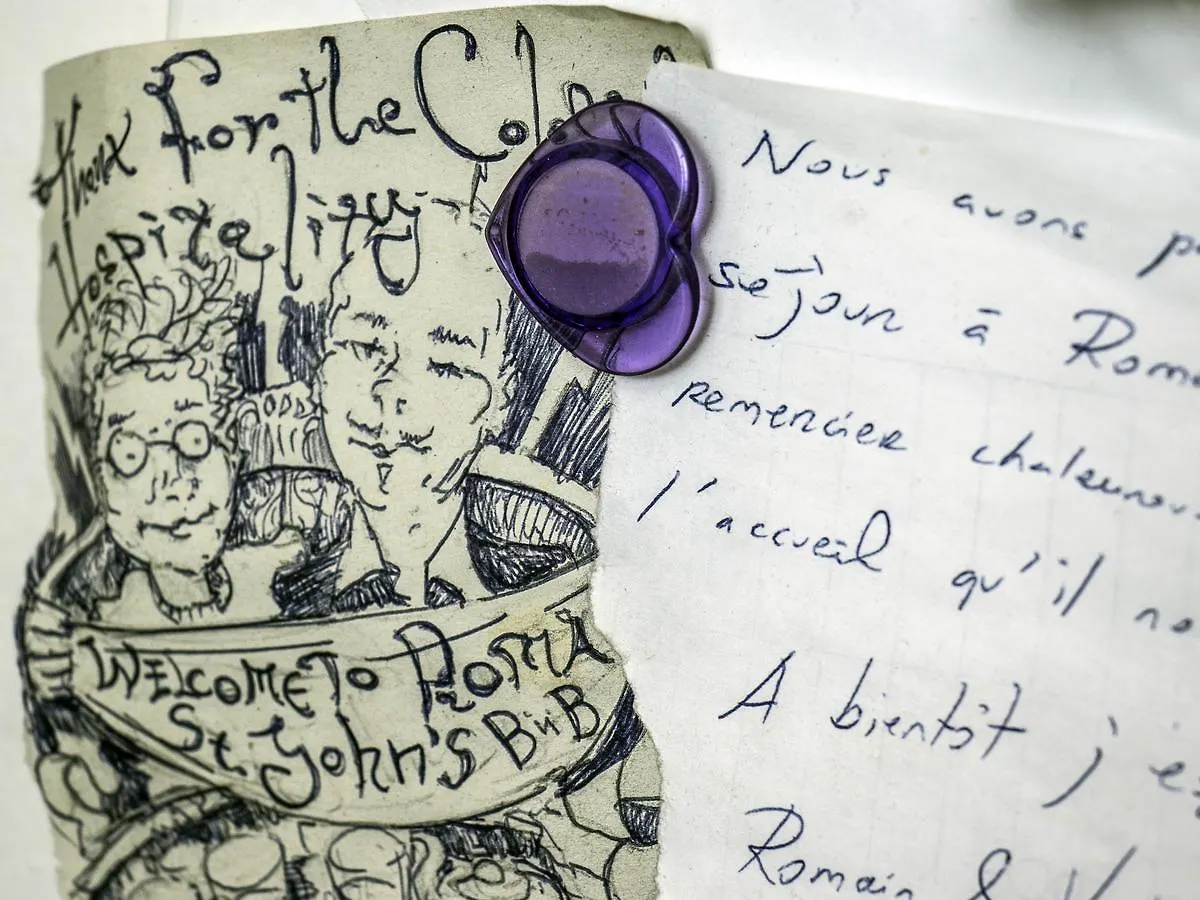 thanx for the
Hospitality
ODD
WELCOME TO ROMA
St. John's B'n'B
Nous avons
séjour à
remercier
l'accueil qu'il
A bientôt j
Romain &